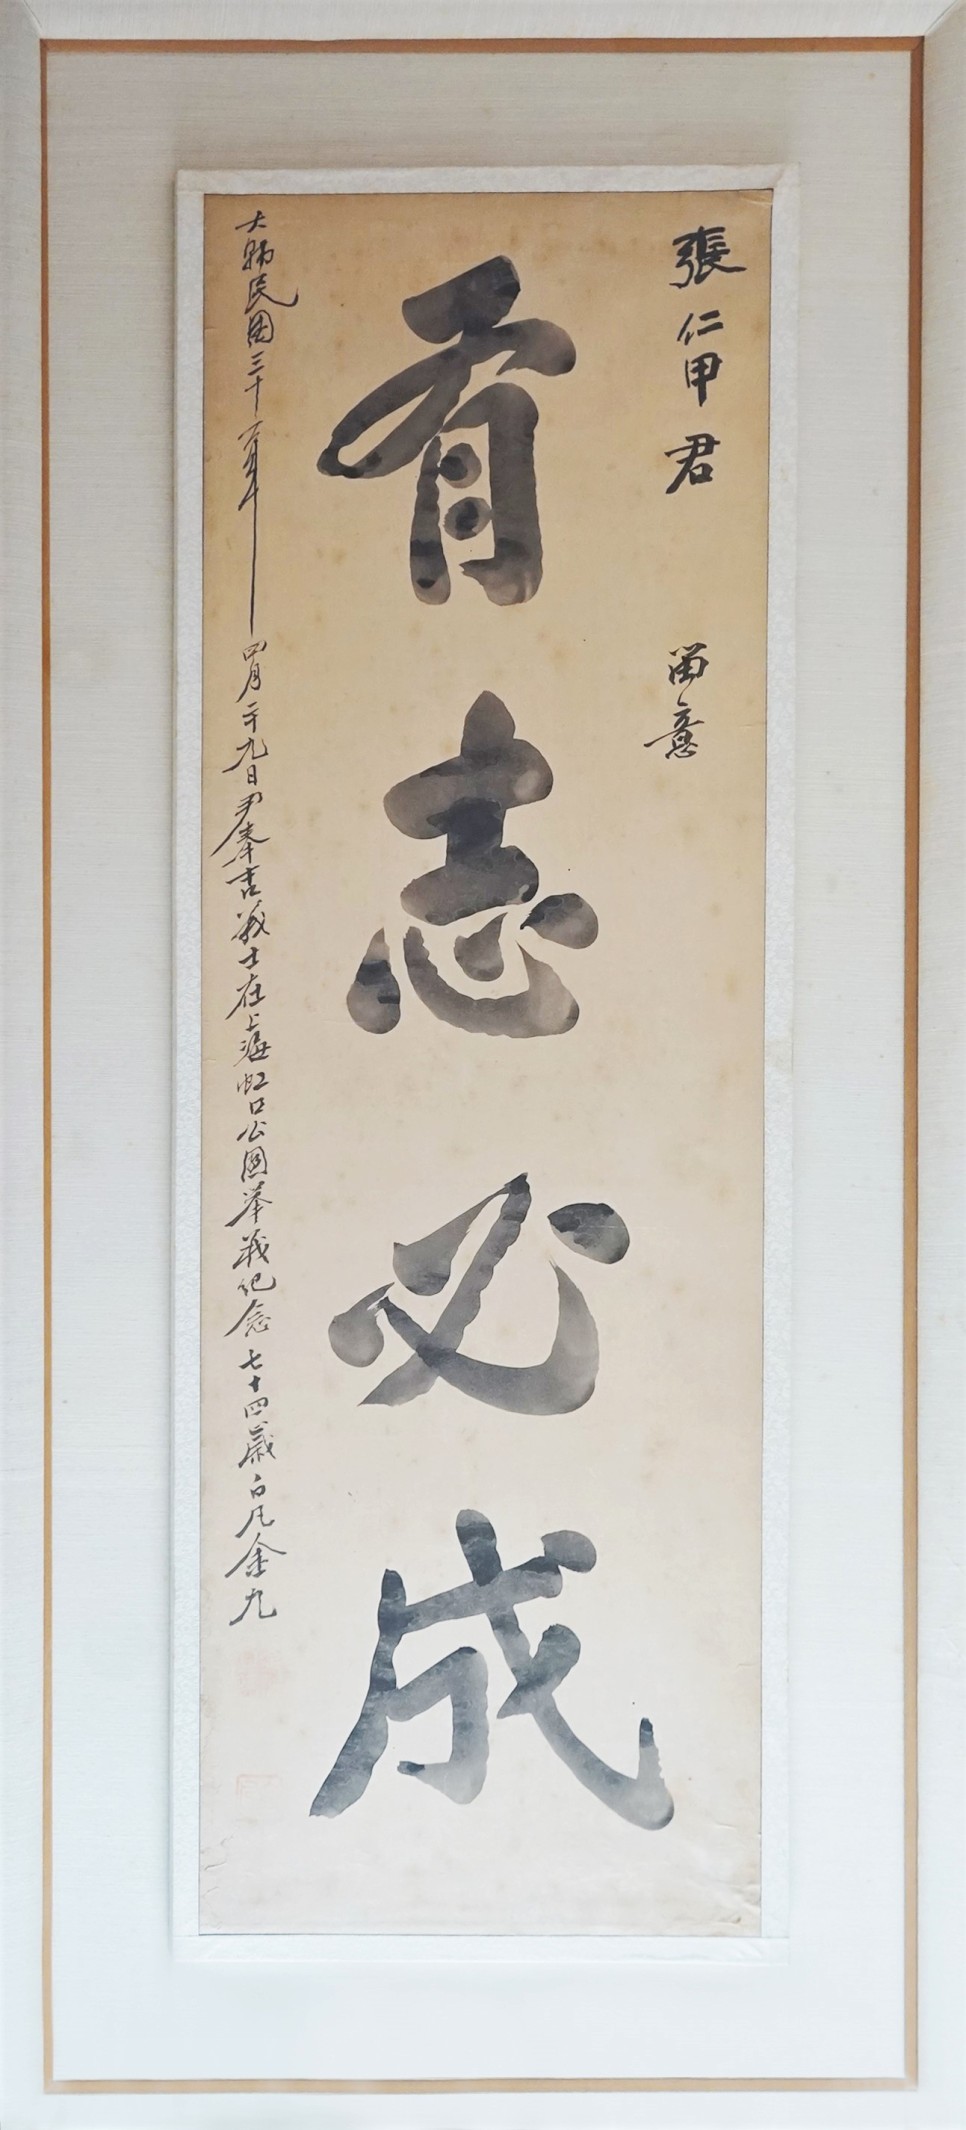 張仁甲君 留意
有志必成
大韓民國三十一年四月二十九日尹奉吉義士在上海虹口公園举義紀念七十四歲白凡金九